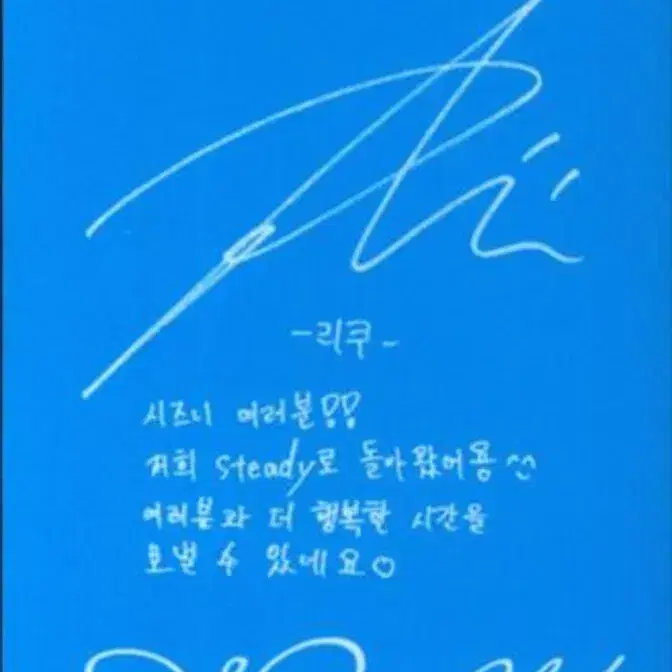 -리쿠-
시즈니 여러분!!
저희 steady로 돌아왔어용^^
여러분과 더 행복한 시간을
보낼 수 있네요♡